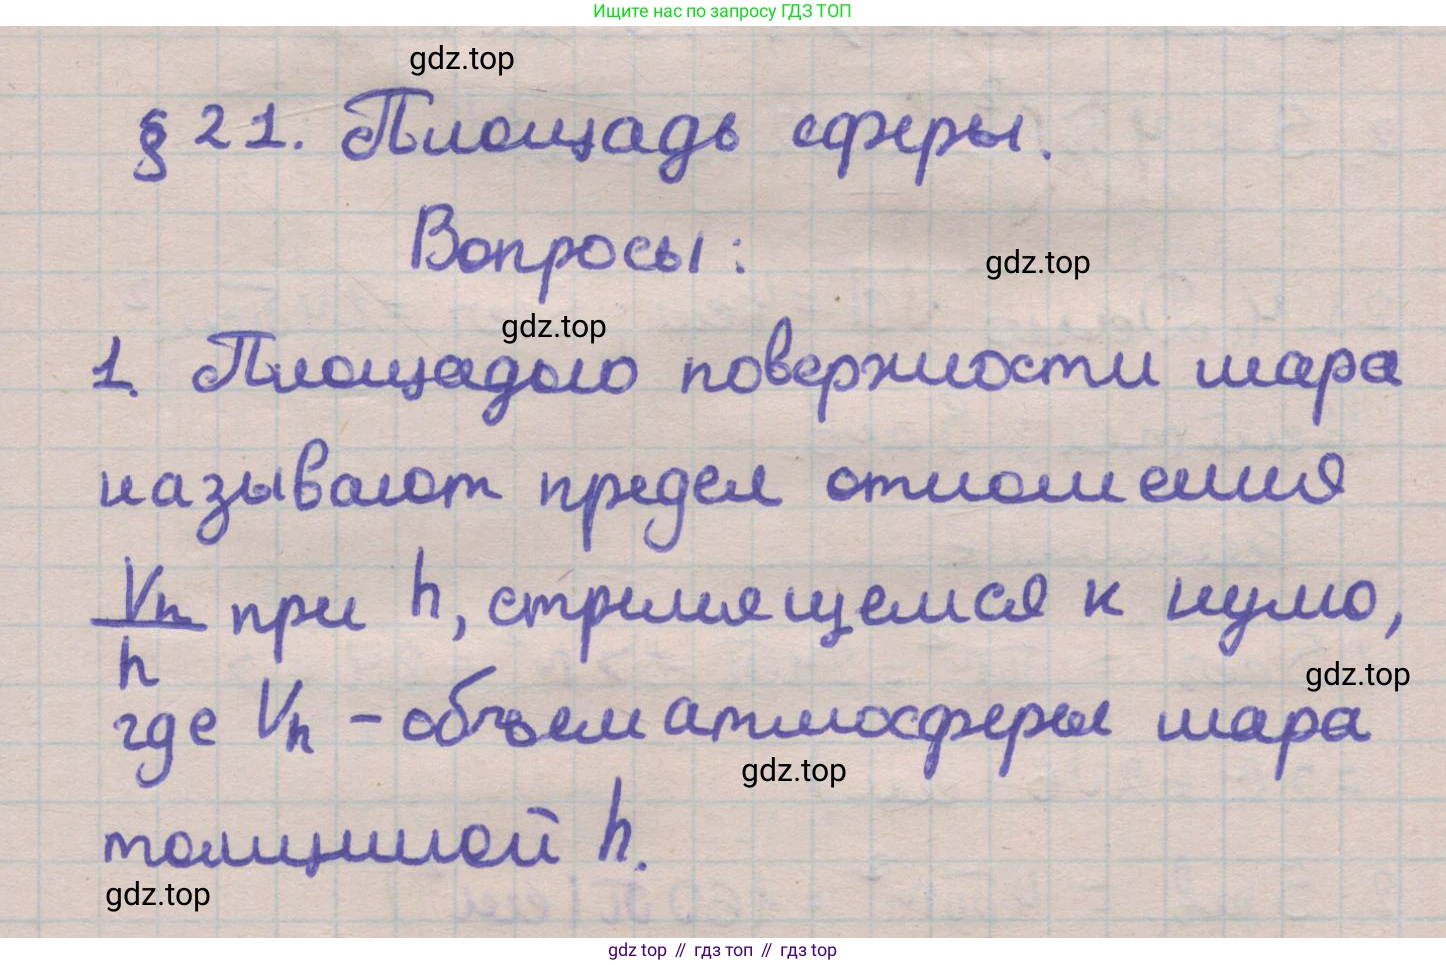 Ищите нас по запросу ГДЗ ТОП
gdz.top
§ 21. Площадь сферы.
Вопросы:
gdz.top
gdz.top
1. Площадью поверхности шара
называют предел отношения
Vh/h при h, стремящемся к нулю,
gdz.top
где Vh – объем атмосферы шара
gdz.top
толщиной h.
gdz.top
gdz top // гдз топ // гдз top